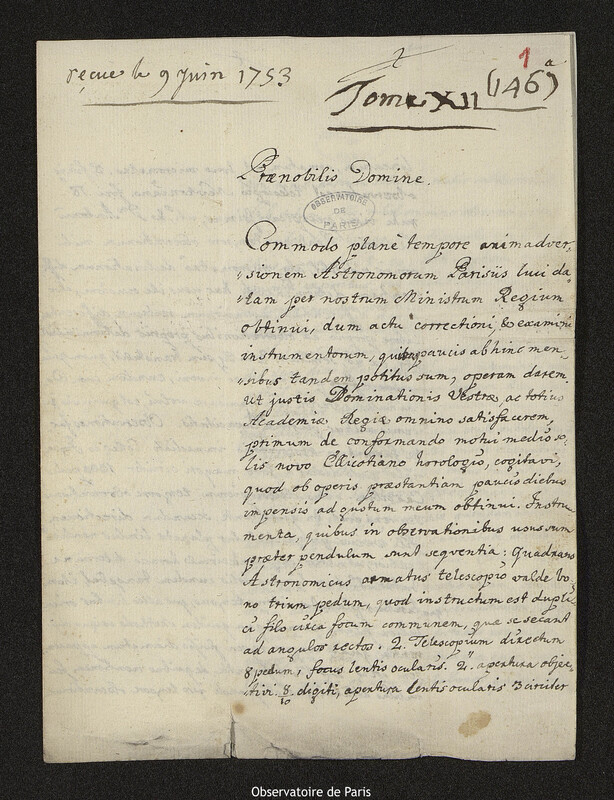 reçue le 9 Juin 1753
1
Tome XII (146) a
Prænobilis Domine.
OBSERVATOIRE
DE
PARIS
Commodo planè tempore animadver-
sionem Astronomorum Parisiis luci da
tam per nostrum Ministrum Regium
obtinui, dum actu correctioni, & examini
instrumentorum, quibus paucis abhinc men-
sibus tandem potitus sum, operam darem.
Ut justis Dominationis Vestræ, ac totius
Academiæ Regiæ omnino satisfacerem,
primum de conformando motui medio so
lis novo Ellicotiano horologio, cogitavi,
quod ob operis præstantiam paucis diebus
impensis ad gustum meum obtinui. Instru
menta, quibus in observationibus usus sum
præter pendulum sunt seqventia: Quadrans
Astronomicus armatus telescopio valde bo
no trium pedum, quod instructum est dupli
ci filo circa focum communem, quæ se secant
ad angulos rectos. 2. Telescopium directum
8 pedum, focus lentis ocularis. 2." apertura objec
tivi 8/10 digiti, apertura lentis ocularis 3 circiter
Observatoire de Paris